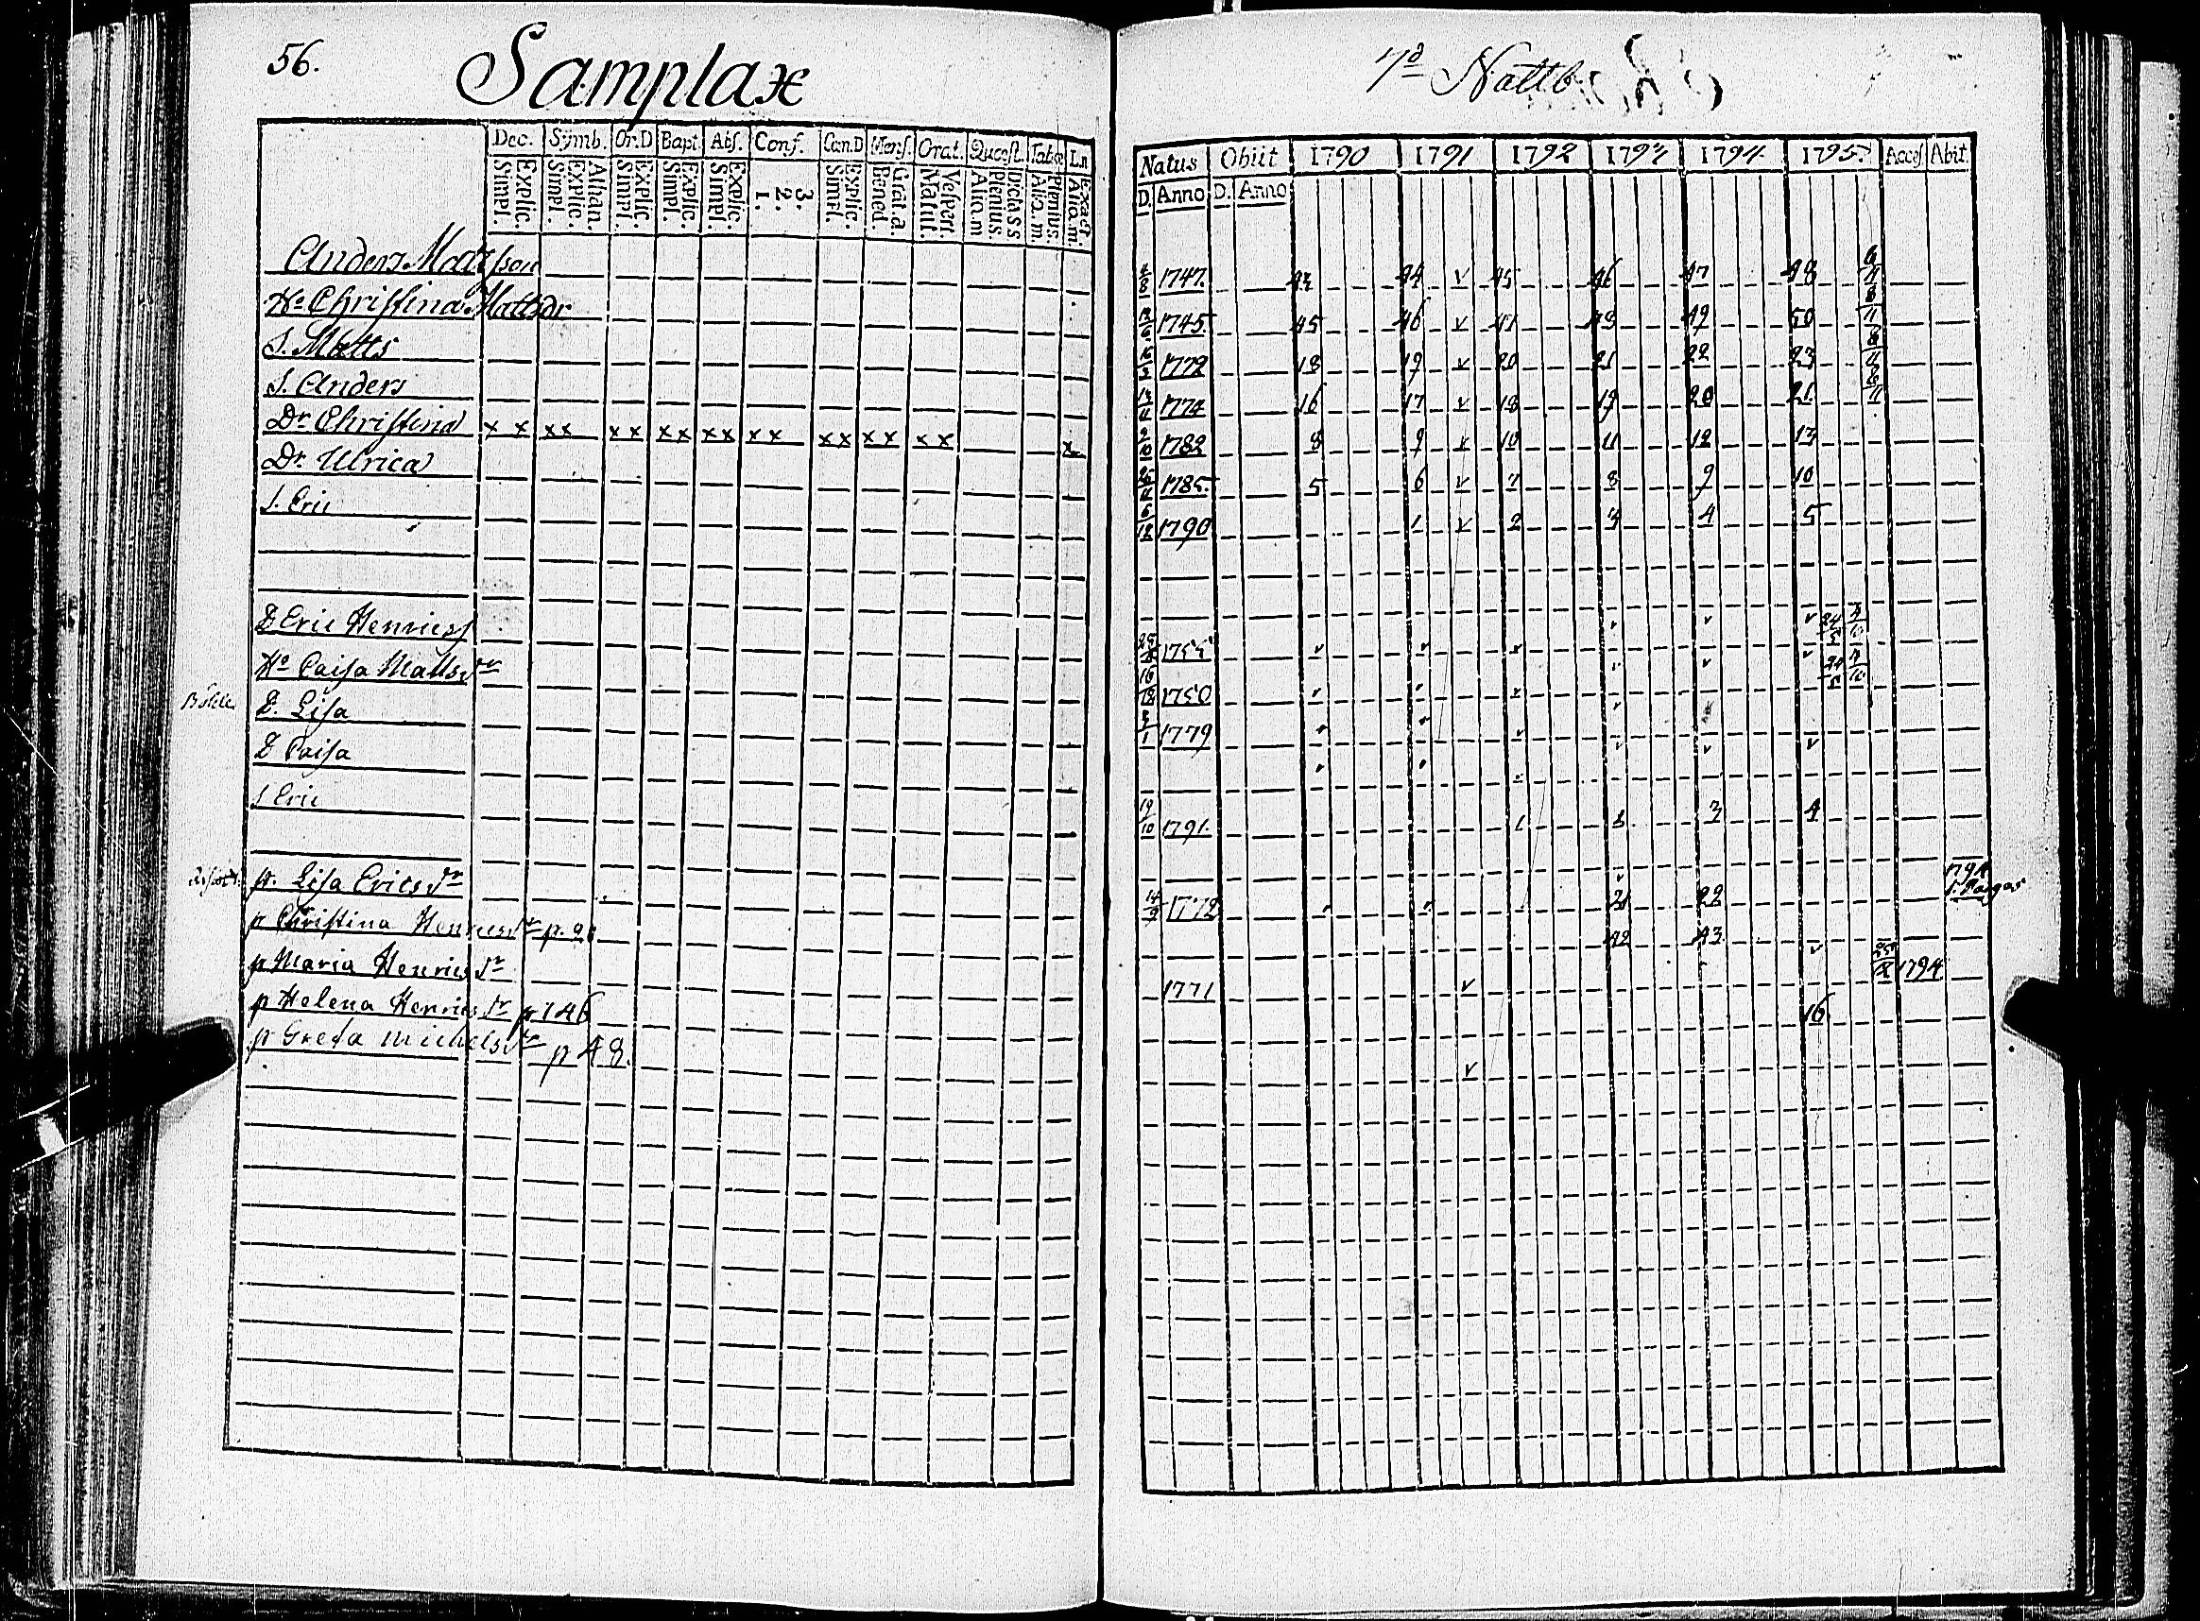 56.
Samplax
Dec. Symb. Or.D Bapt. Abs. Conf. Cæn.D Mens. Orat. Quæst. Tabæ
Explic. Simpl. Athan. Explic. Simpl. Explic. Simpl. Explic. Simpl. Explic. Simpl. 3. 2. 1. Explic. Simpl. Grat.a Bened. Vespert. Matut. Dicta SS Plenius. Aliq.m Plenius. Aliq.m Exact Aliq.m
Anders Matsson
Ha Christina Mattsdr
S. Matts
S. Anders
Dr Christina x x x x x x x x x x x x x x x x x x x
Dr. Ulrica
S. Eric
D Eric Henricss
Ha Caisa Matts dr
D. Lisa
D Caisa
S Eric
p. Lisa Erics dr
p Christina Henrics dr
p Maria Henrics dr
p Helena Henrics dr p 146
p Greta Michels dr p 48.
7d Nattb
Natus Obiit 1790 1791 1792 1793 1794. 1795. Acces. Abit.
D. Anno D. Anno
1747. 43 44 v 45 46 47 48
1745 45 46 v 47 48 49 50
1772 18 19 v 20 21 22 23
1774 16 17 v 18 19 20 21
9/10 1782 8 9 v 10 11 12 13
1785. 5 6 v 7 8 9 10
6/12 1790 1 v 2 3 4 5
1755
1750
1779
19/10 1791. 1 2 3 4
14/9 1772 21 22 1794 Pargas
42 43
1771 v 1794
16
v